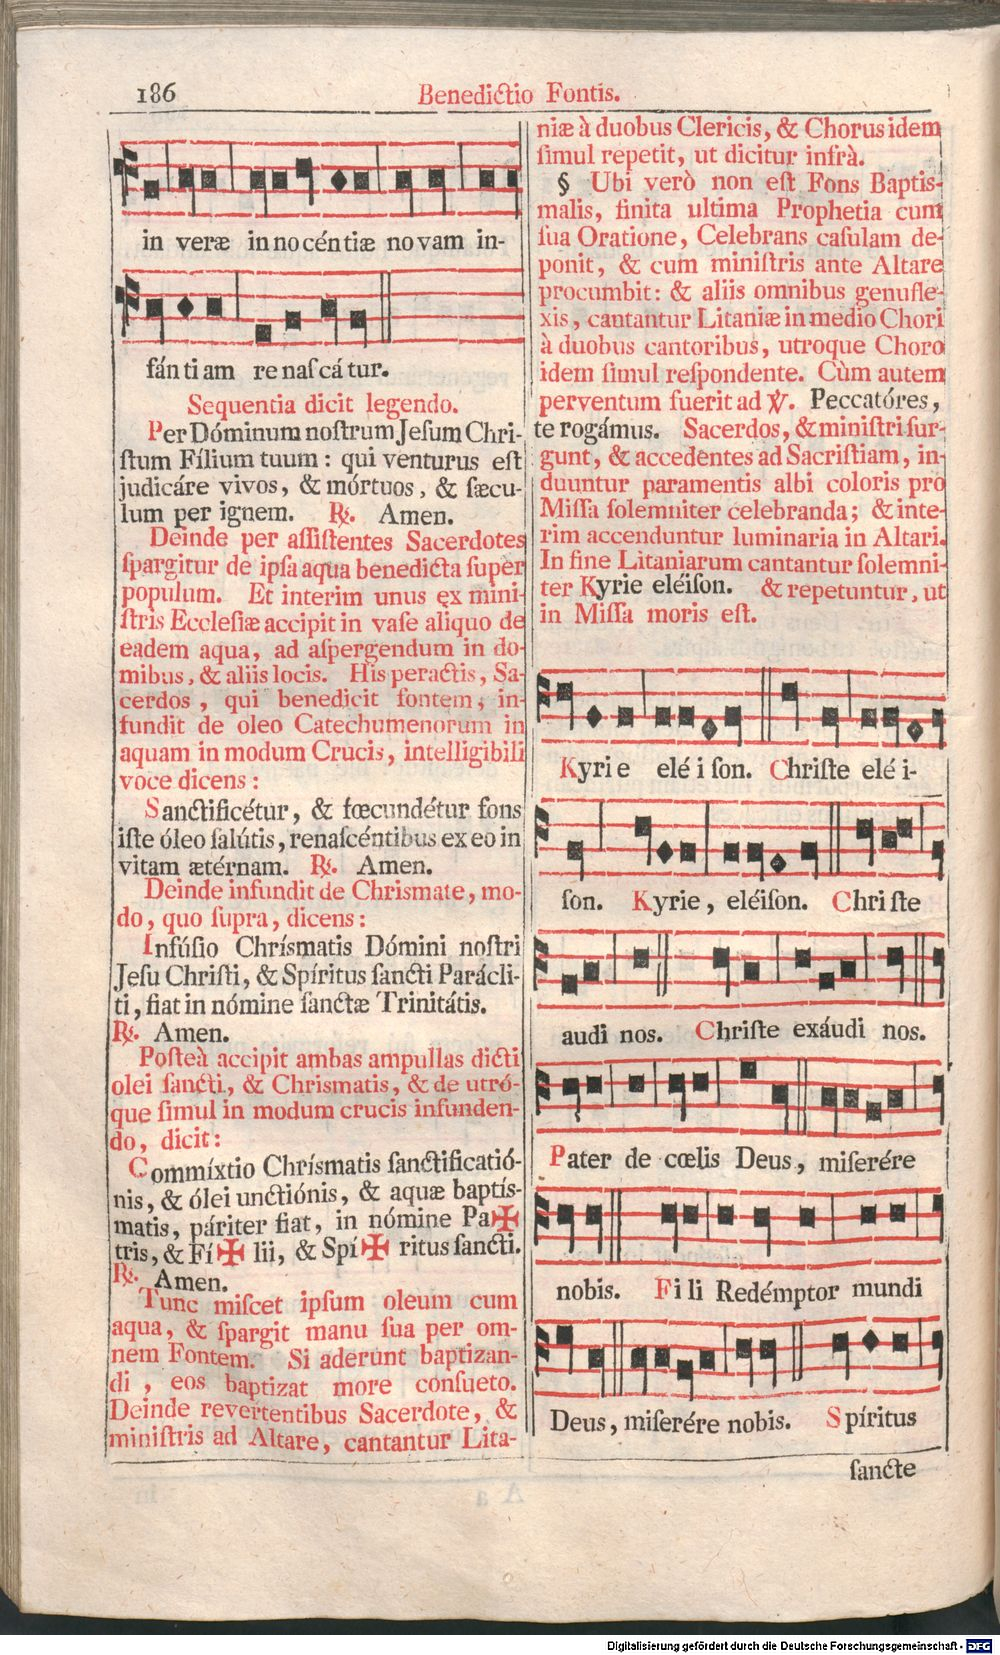 186
Benedictio Fontis.
in veræ in no cén tiæ no vam in-
fán ti am re naſ cá tur.
Sequentia dicit legendo.
Per Dóminum noſtrum Jeſum Chri-
ſtum Fílium tuum: qui venturus eſt
judicáre vivos, & mórtuos, & ſæcu-
lum per ignem. ℟. Amen.
Deinde per aſſiſtentes Sacerdotes
ſpargitur de ipſa aqua benedicta ſuper
populum. Et interim unus ex mini-
ſtris Eccleſiæ accipit in vaſe aliquo de
eadem aqua, ad aſpergendum in do-
mibus, & aliis locis. His peractis, Sa-
cerdos, qui benedicit fontem, in-
fundit de oleo Catechumenorum in
aquam in modum Crucis, intelligibili
voce dicens:
Sanctificétur, & fœcundétur fons
iſte óleo ſalútis, renaſcéntibus ex eo in
vitam ætérnam. ℟. Amen.
Deinde infundit de Chriſmate, mo-
do, quo ſupra, dicens:
Infúſio Chríſmatis Dómini noſtri
Jeſu Chriſti, & Spíritus ſancti Parácli-
ti, fiat in nómine ſanctæ Trinitátis.
℟. Amen.
Poſteà accipit ambas ampullas dicti
olei ſancti, & Chriſmatis, & de utró-
que ſimul in modum crucis infunden-
do, dicit:
Commíxtio Chríſmatis ſanctificatió-
nis, & ólei unctiónis, & aquæ baptíſ-
matis, páriter fiat, in nómine Pa✠
tris, & Fí✠ lii, & Spí✠ ritus ſancti.
℟. Amen.
Tunc miſcet ipſum oleum cum
aqua, & ſpargit manu ſua per om-
nem Fontem. Si aderunt baptizan-
di, eos baptizat more conſueto.
Deinde revertentibus Sacerdote, &
miniſtris ad Altare, cantantur Lita-
niæ à duobus Clericis, & Chorus idem
ſimul repetit, ut dicitur infrà.
§ Ubi verò non eſt Fons Baptiſ-
malis, finita ultima Prophetia cum
ſua Oratione, Celebrans caſulam de-
ponit, & cum miniſtris ante Altare
procumbit: & aliis omnibus genufle-
xis, cantantur Litaniæ in medio Chori
à duobus cantoribus, utroque Choro
idem ſimul reſpondente. Cùm autem
perventum fuerit ad ℣. Peccatóres,
te rogámus. Sacerdos, & miniſtri ſur-
gunt, & accedentes ad Sacriſtiam, in-
duuntur paramentis albi coloris pro
Miſſa ſolemniter celebranda; & inte-
rim accenduntur luminaria in Altari.
In fine Litaniarum cantantur ſolemni-
ter Kyrie eléiſon. & repetuntur, ut
in Miſſa moris eſt.
Kyri e elé i ſon. Chriſte elé i-
ſon. Kyrie, eléiſon. Chri ſte
audi nos. Chriſte exáudi nos.
Pater de cœlis Deus, miſerére
nobis. Fi li Redémptor mundi
Deus, miſerére nobis. Spíritus
ſancte
Digitalisierung gefördert durch die Deutsche Forschungsgemeinschaft - DFG